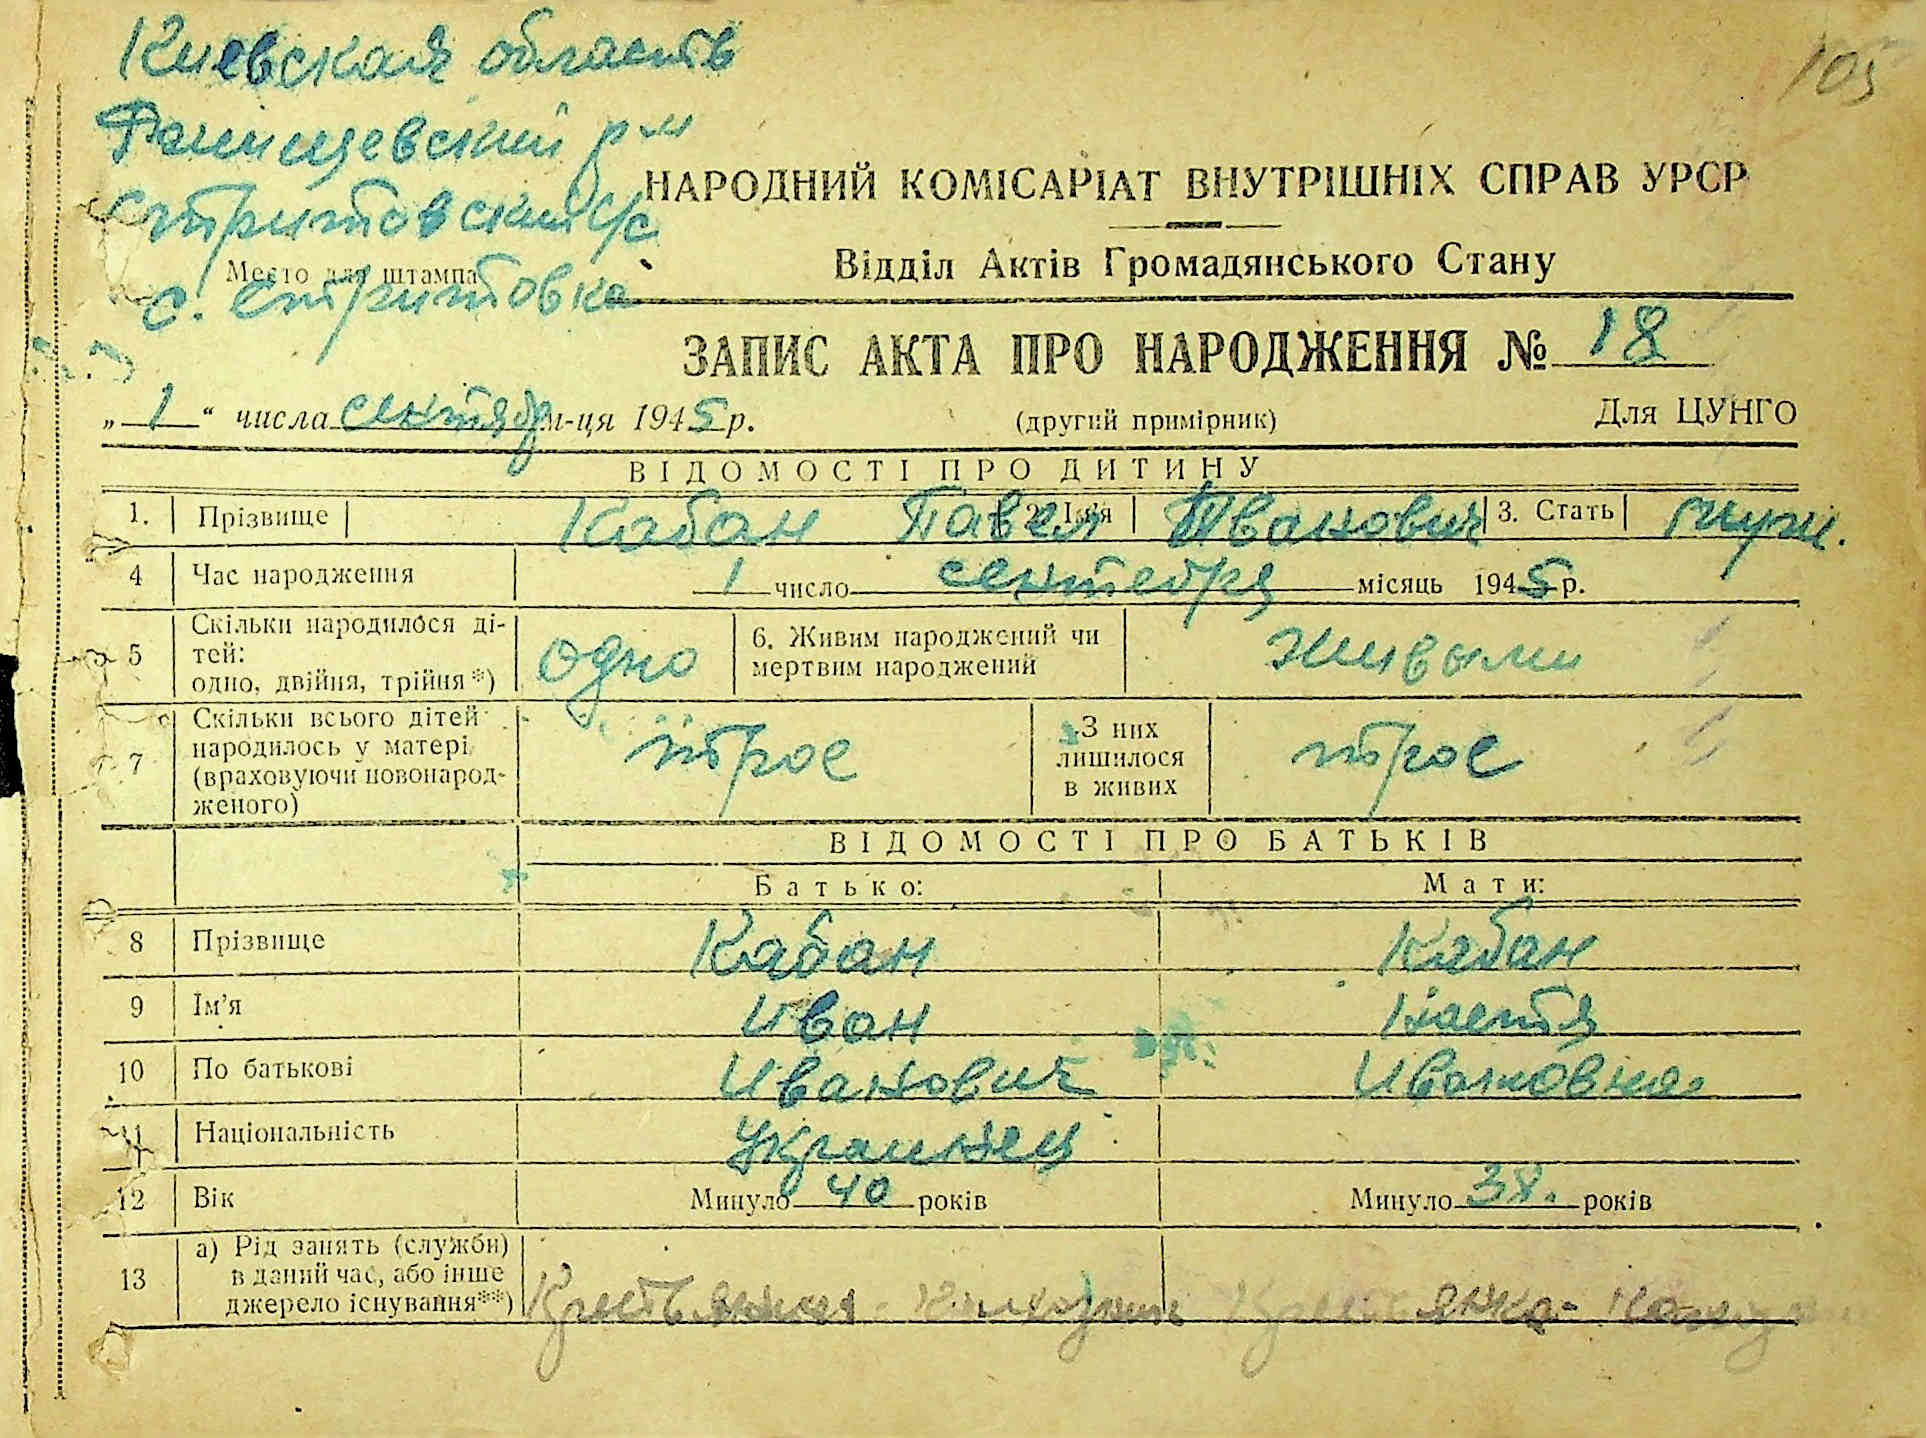 Киевская область
105
Фанищевский р-н
Стритовский с/с
НАРОДНИЙ КОМІСАРІАТ ВНУТРІШНІХ СПРАВ УРСР
Відділ Актів Громадянського Стану
Место для штампа
с. Стритовка
ЗАПИС АКТА ПРО НАРОДЖЕННЯ № 18
„ 1 “ числа сентябр м-ця 1945 р. (другий примірник) Для ЦУНГО
ВІДОМОСТІ ПРО ДИТИНУ
1. Прізвище Кабан Павел 2. Ім'я Иванович 3. Стать муж.
4 Час народження 1 число сентебря місяць 1945 р.
5 Скільки народилося ді-
тей:
одно, двійня, трійня*) одно 6. Живим народжений чи
мертвим народжений живыми
7 Скільки всього дітей
народилось у матері
(враховуючи новонарод-
женого) трое З них
лишилося
в живих трое
ВІДОМОСТІ ПРО БАТЬКІВ
Батько: Мати:
8 Прізвище Кабан Кабан
9 Ім'я Иван Настя
10 По батькові Иванович Ивановна
11 Національність Украинец
12 Вік Минуло 40 років Минуло 38. років
13 а) Рід занять (служби)
в даний час, або інше
джерело існування**)